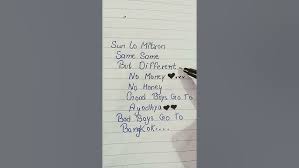 Sun Lo Mitron
Same Same
But Different
No Money 🖤....
No Honey
Good Boys Go To
Ayodhya 🖤🖤
Bad Boys Go To
Bangkok....